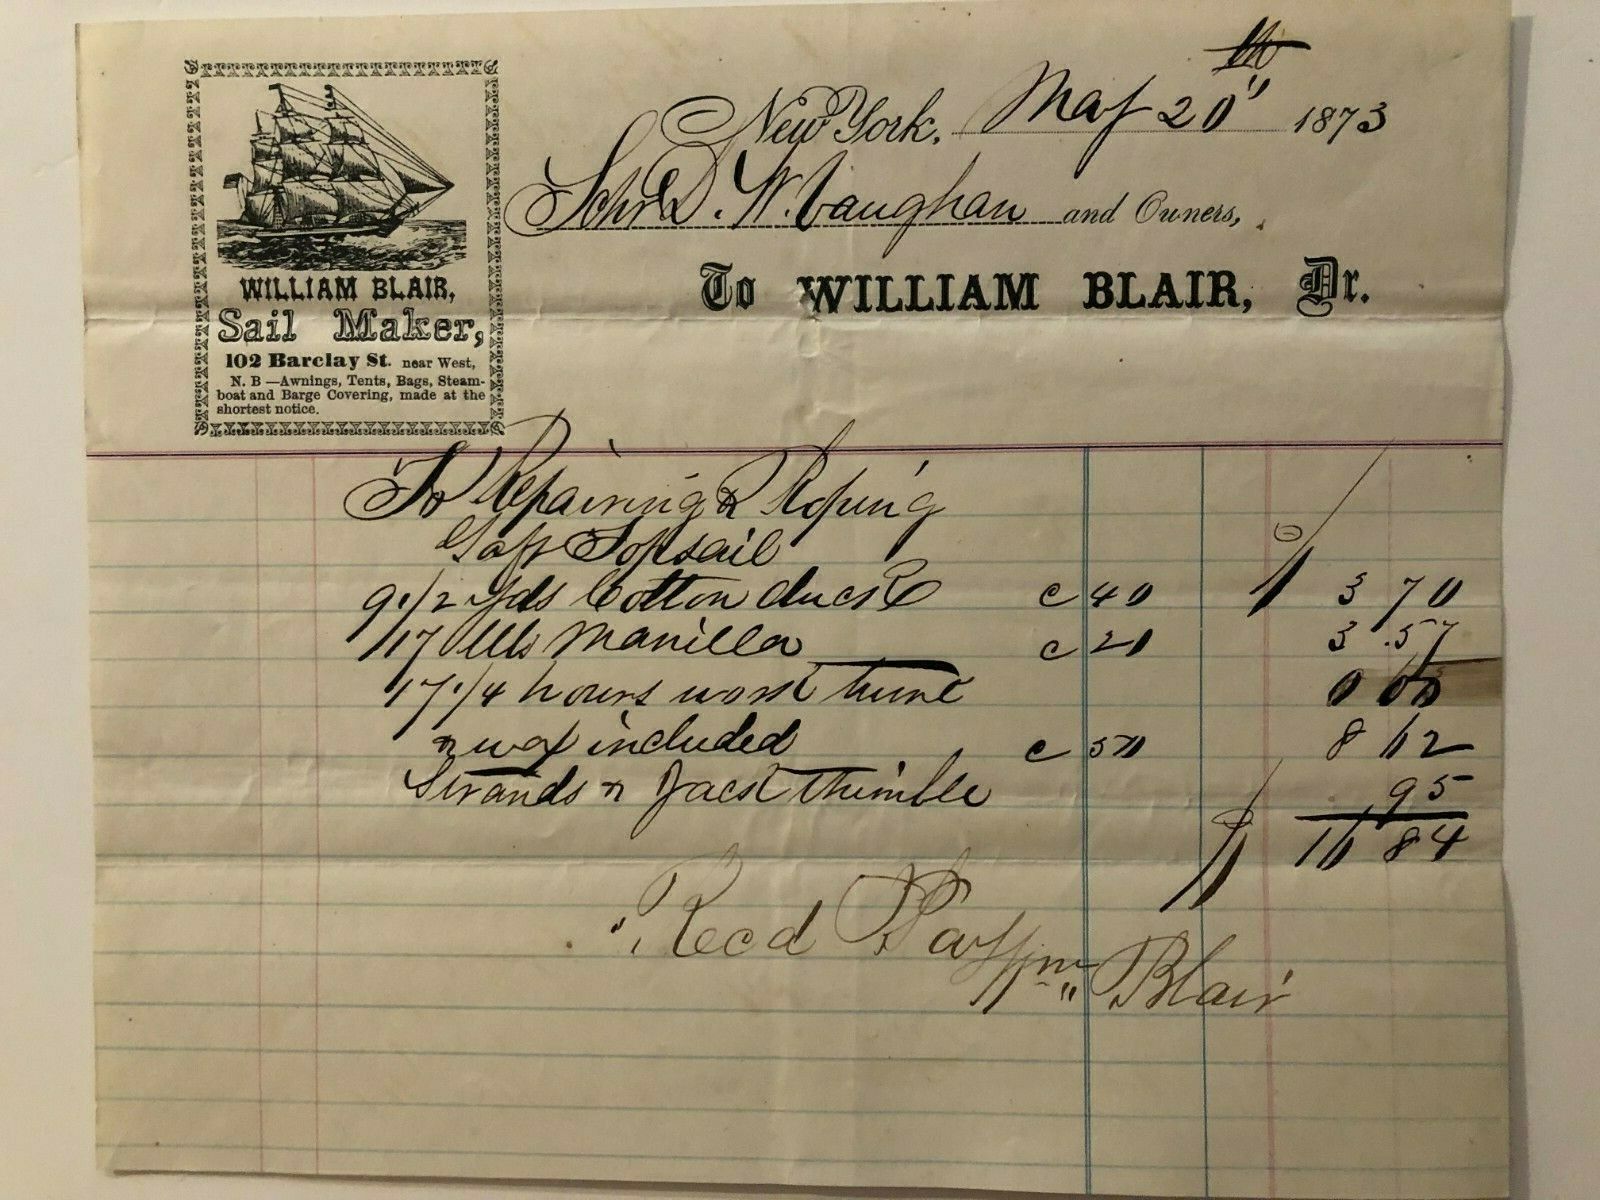 New York, May 20th 1873
Schr D. W. Vaughan and Owners,
To WILLIAM BLAIR, Dr.
WILLIAM BLAIR,
Sail Maker,
102 Barclay St. near West,
N. B —Awnings, Tents, Bags, Steam-
boat and Barge Covering, made at the
shortest notice.
To Repairing & Roping
Gaff Topsail
9 1/2 yds Cotton duck c 40 3 70
17 lbs Manilla c 21 3.57
17 1/4 hours work twine 0 00
& wax included c 50 8 62
Strands & Jack thimble 95
$ 16 84
Recd Pay Wm Blair